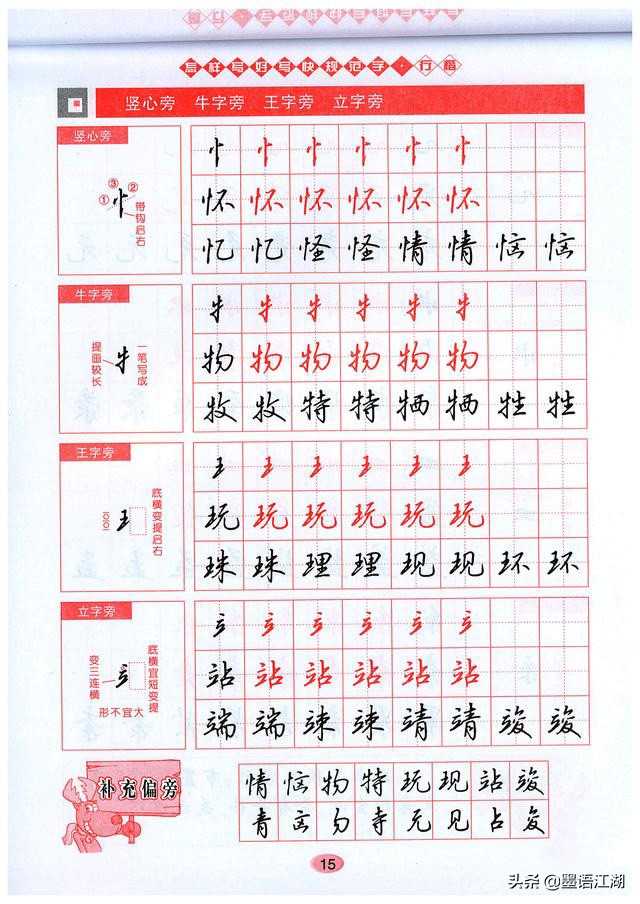 怎样写好写快规范字·行楷
竖心旁 牛字旁 王字旁 立字旁
竖心旁
③
① 忄 ②
带钩启右
忄 忄 忄 忄 忄 忄
怀 怀 怀 怀 怀 怀
忆 忆 怪 怪 情 情 恼 恼
牛字旁
一笔写成
牜
提画较长
牜 牜 牜 牜 牜 牜
物 物 物 物 物 物
牧 牧 特 特 牺 牺 牲 牲
王字旁
底横变提启右
王
王 王 王 王 王 王
玩 玩 玩 玩 玩 玩
珠 珠 理 理 现 现 环 环
立字旁
底横宜短变提
立
变三连横
形不宜大
立 立 立 立 立 立
站 站 站 站 站 站
端 端 竦 竦 靖 靖 竣 竣
补充偏旁
情 恼 物 特 玩 现 站 竣
青 㐫 勿 寺 元 见 占 夋
15
头条 @墨语江湖